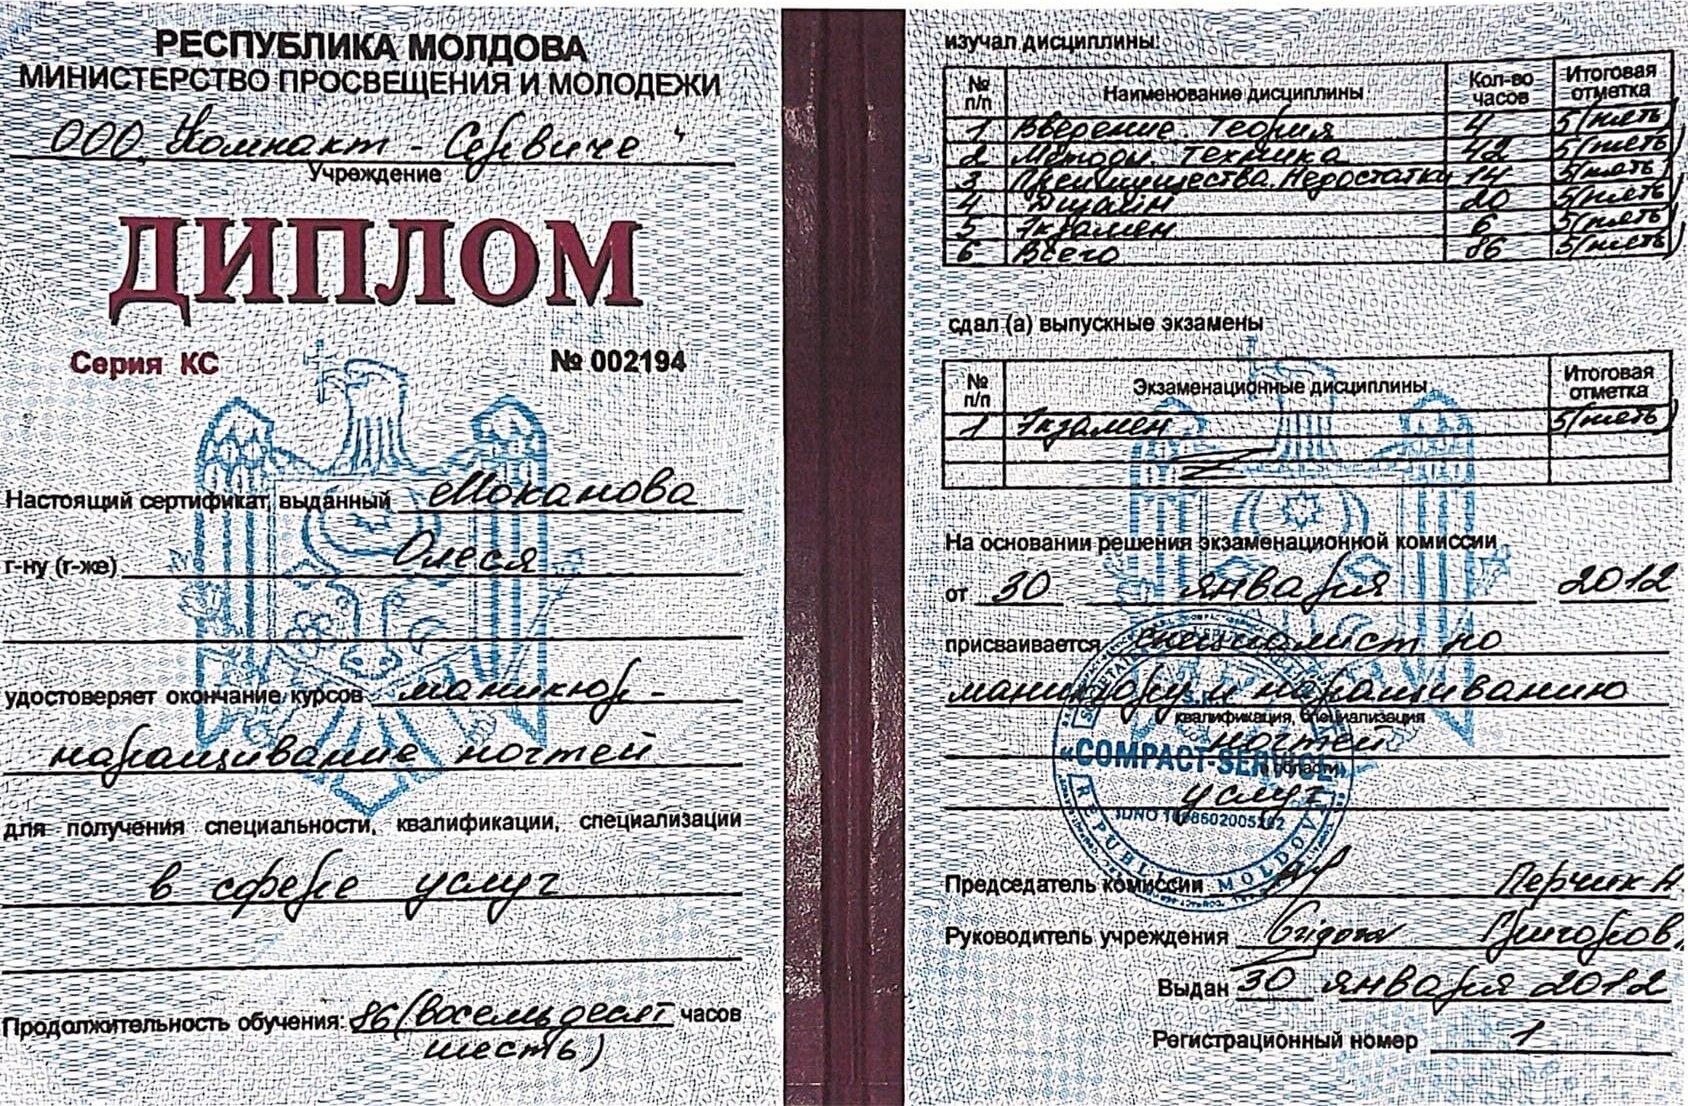 РЕСПУБЛИКА МОЛДОВА
МИНИСТЕРСТВО ПРОСВЕЩЕНИЯ И МОЛОДЕЖИ
ООО "Компакт - Сервиче"
Учреждение
ДИПЛОМ
Серия КС № 002194
Настоящий сертификат, выданный Моканова
г-ну (г-же) Олеся
удостоверяет окончание курсов маникюр -
наращивание ногтей
для получения специальности, квалификации, специализации
в сфере услуг
Продолжительность обучения: 86 (восемьдесят часов
шесть)
изучал дисциплины:
№ п/п Наименование дисциплины Кол-во часов Итоговая отметка
1 Введение. Теория 4 5 (пять)
2 Методы. Техника 42 5 (пять)
3 Преимущества. Недостатки 14 5 (пять)
4 Дизайн 20 5 (пять)
5 Экзамен 6 5 (пять)
6 Всего 86 5 (пять)
сдал (а) выпускные экзамены
№ п/п Экзаменационные дисциплины Итоговая отметка
1 Экзамен 5 (пять)
На основании решения экзаменационной комиссии
от 30 января 2012
присваивается специалист по
маникюру и наращиванию
квалификация, специализация
ногтей
в области
услуг
«COMPACT-SERVICE»
REPUBLICA MOLDOVA
Председатель комиссии Перчик А.
Руководитель учреждения Григоров.
Выдан 30 января 2012
Регистрационный номер 1